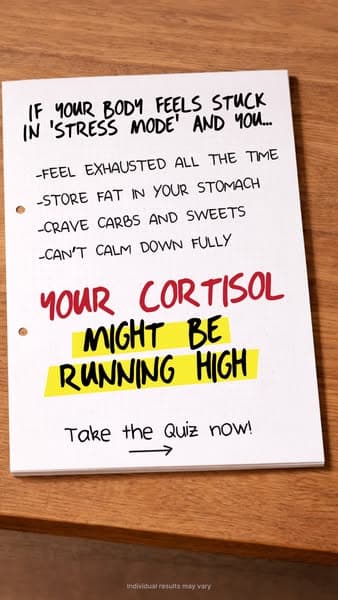 IF YOUR BODY FEELS STUCK
IN 'STRESS MODE' AND YOU...
-FEEL EXHAUSTED ALL THE TIME
-STORE FAT IN YOUR STOMACH
-CRAVE CARBS AND SWEETS
-CAN'T CALM DOWN FULLY
YOUR CORTISOL
MIGHT BE
RUNNING HIGH
Take the Quiz now!
Individual results may vary